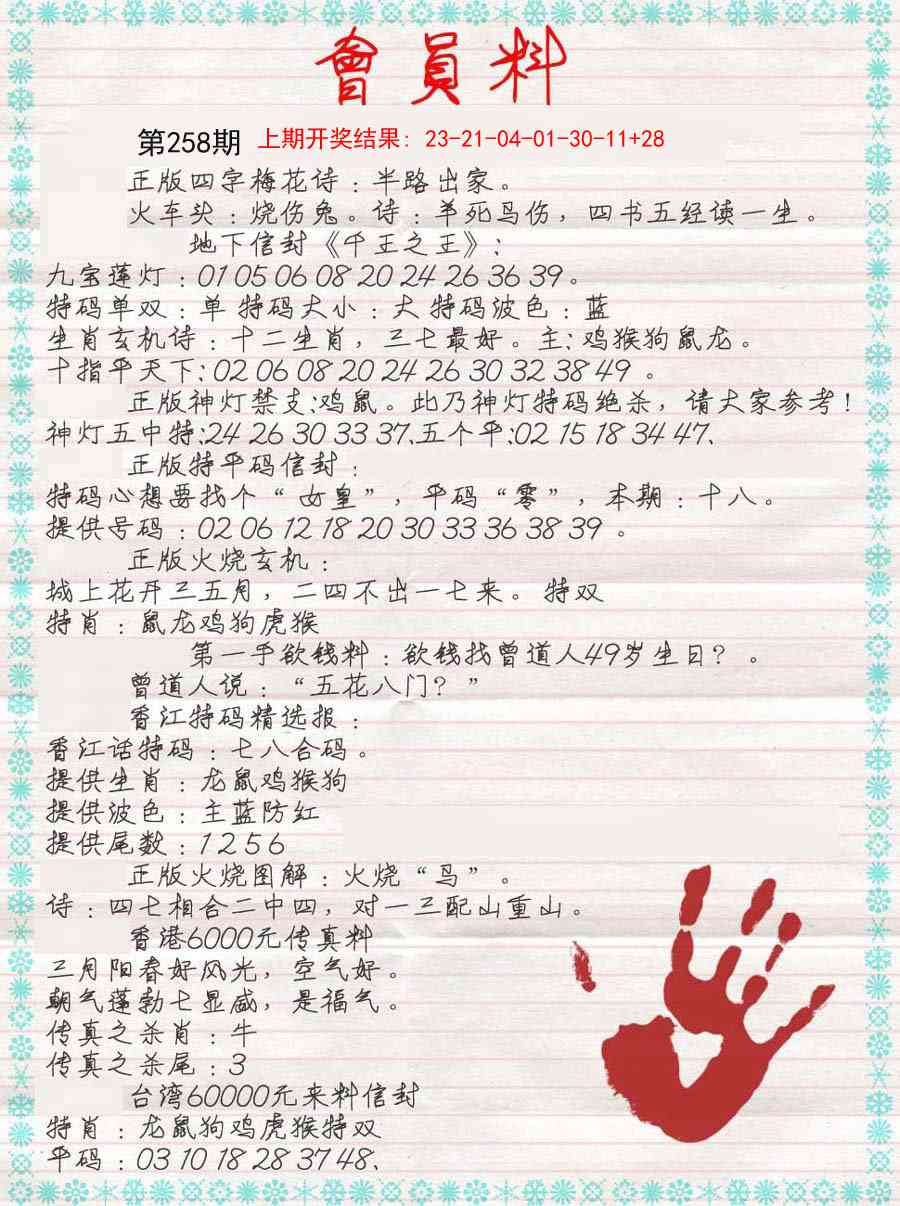 會員料
第258期 上期开奖结果：23-21-04-01-30-11+28
正版四字梅花诗：半路出家。
火车头：烧伤兔。诗：羊死鸟伤，四书五经读一生。
地下信封《千王之王》：
九宝莲灯：01 05 06 08 20 24 26 36 39。
特码单双：单 特码大小：大 特码波色：蓝
生肖玄机诗：十二生肖，三七最好。主：鸡猴狗鼠龙。
十指平天下：02 06 08 20 24 26 30 32 38 49 。
正版神灯禁支：鸡鼠。此乃神灯特码绝杀，请大家参考！
神灯五中特：24 26 30 33 37、五个平：02 15 18 34 47、
正版特平码信封：
特码心想要找个“女皇”，平码“零”，本期：十八。
提供号码：02 06 12 18 20 30 33 36 38 39 。
正版火烧玄机：
城上花开三五月，二四不出一七来。特双
特肖：鼠龙鸡狗虎猴
第一手欲钱料：欲钱找曾道人49岁生日？。
曾道人说：“五花八门？”
香江特码精选报：
香江话特码：七八合码。
提供生肖：龙鼠鸡猴狗
提供波色：主蓝防红
提供尾数：1 2 5 6
正版火烧图解：火烧“鸟”。
诗：四七相合二中四，对一三配山重山。
香港6000元传真料
三月阳春好风光，空气好。
朝气蓬勃七显威，是福气。
传真之杀肖：牛
传真之杀尾：3
台湾60000元来料信封
特肖：龙鼠狗鸡虎猴特双
平码：03 10 18 28 37 48、